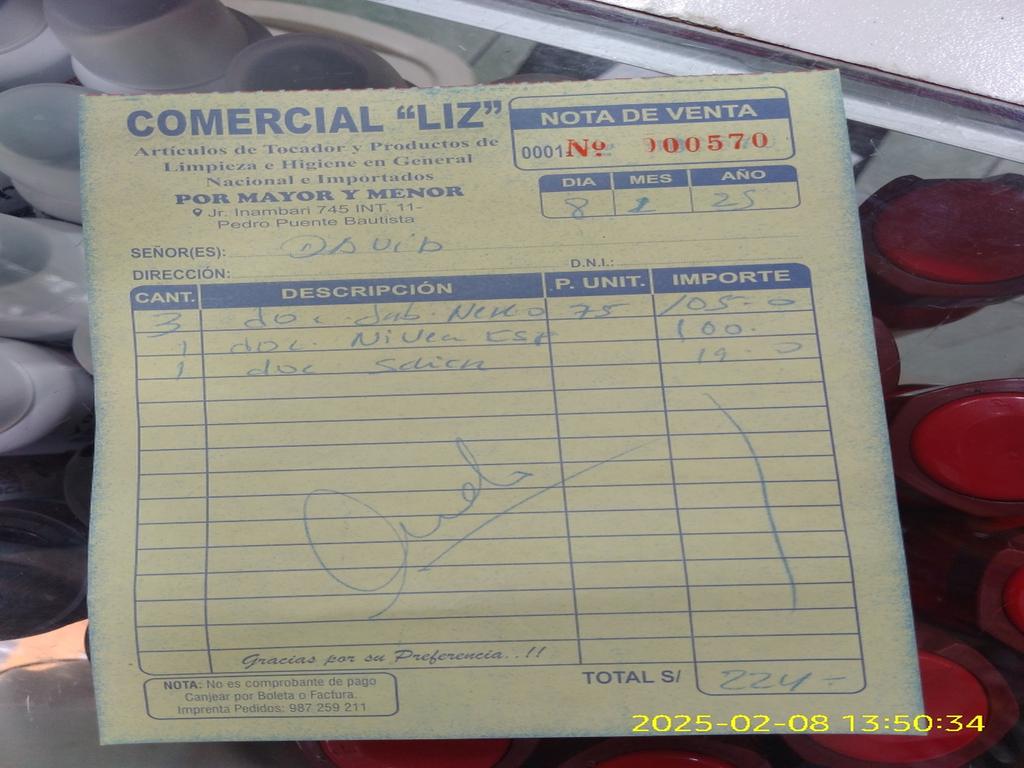 COMERCIAL "LIZ"
Artículos de Tocador y Productos de
Limpieza e Higiene en General
Nacional e Importados
POR MAYOR Y MENOR
Jr. Inambari 745 INT. 11-
Pedro Puente Bautista
NOTA DE VENTA
0001 Nº 000570
DIA MES AÑO
8 2 25
SEÑOR(ES): DAVID
DIRECCIÓN: D.N.I.:
CANT. DESCRIPCIÓN P. UNIT. IMPORTE
3 doc 75 105-0
1 doc. Nivea 100.
1 doc 19-0
Gracias por su Preferencia..!!
NOTA: No es comprobante de pago
Canjear por Boleta o Factura.
Imprenta Pedidos: 987 259 211
TOTAL S/ 224-
2025-02-08 13:50:34